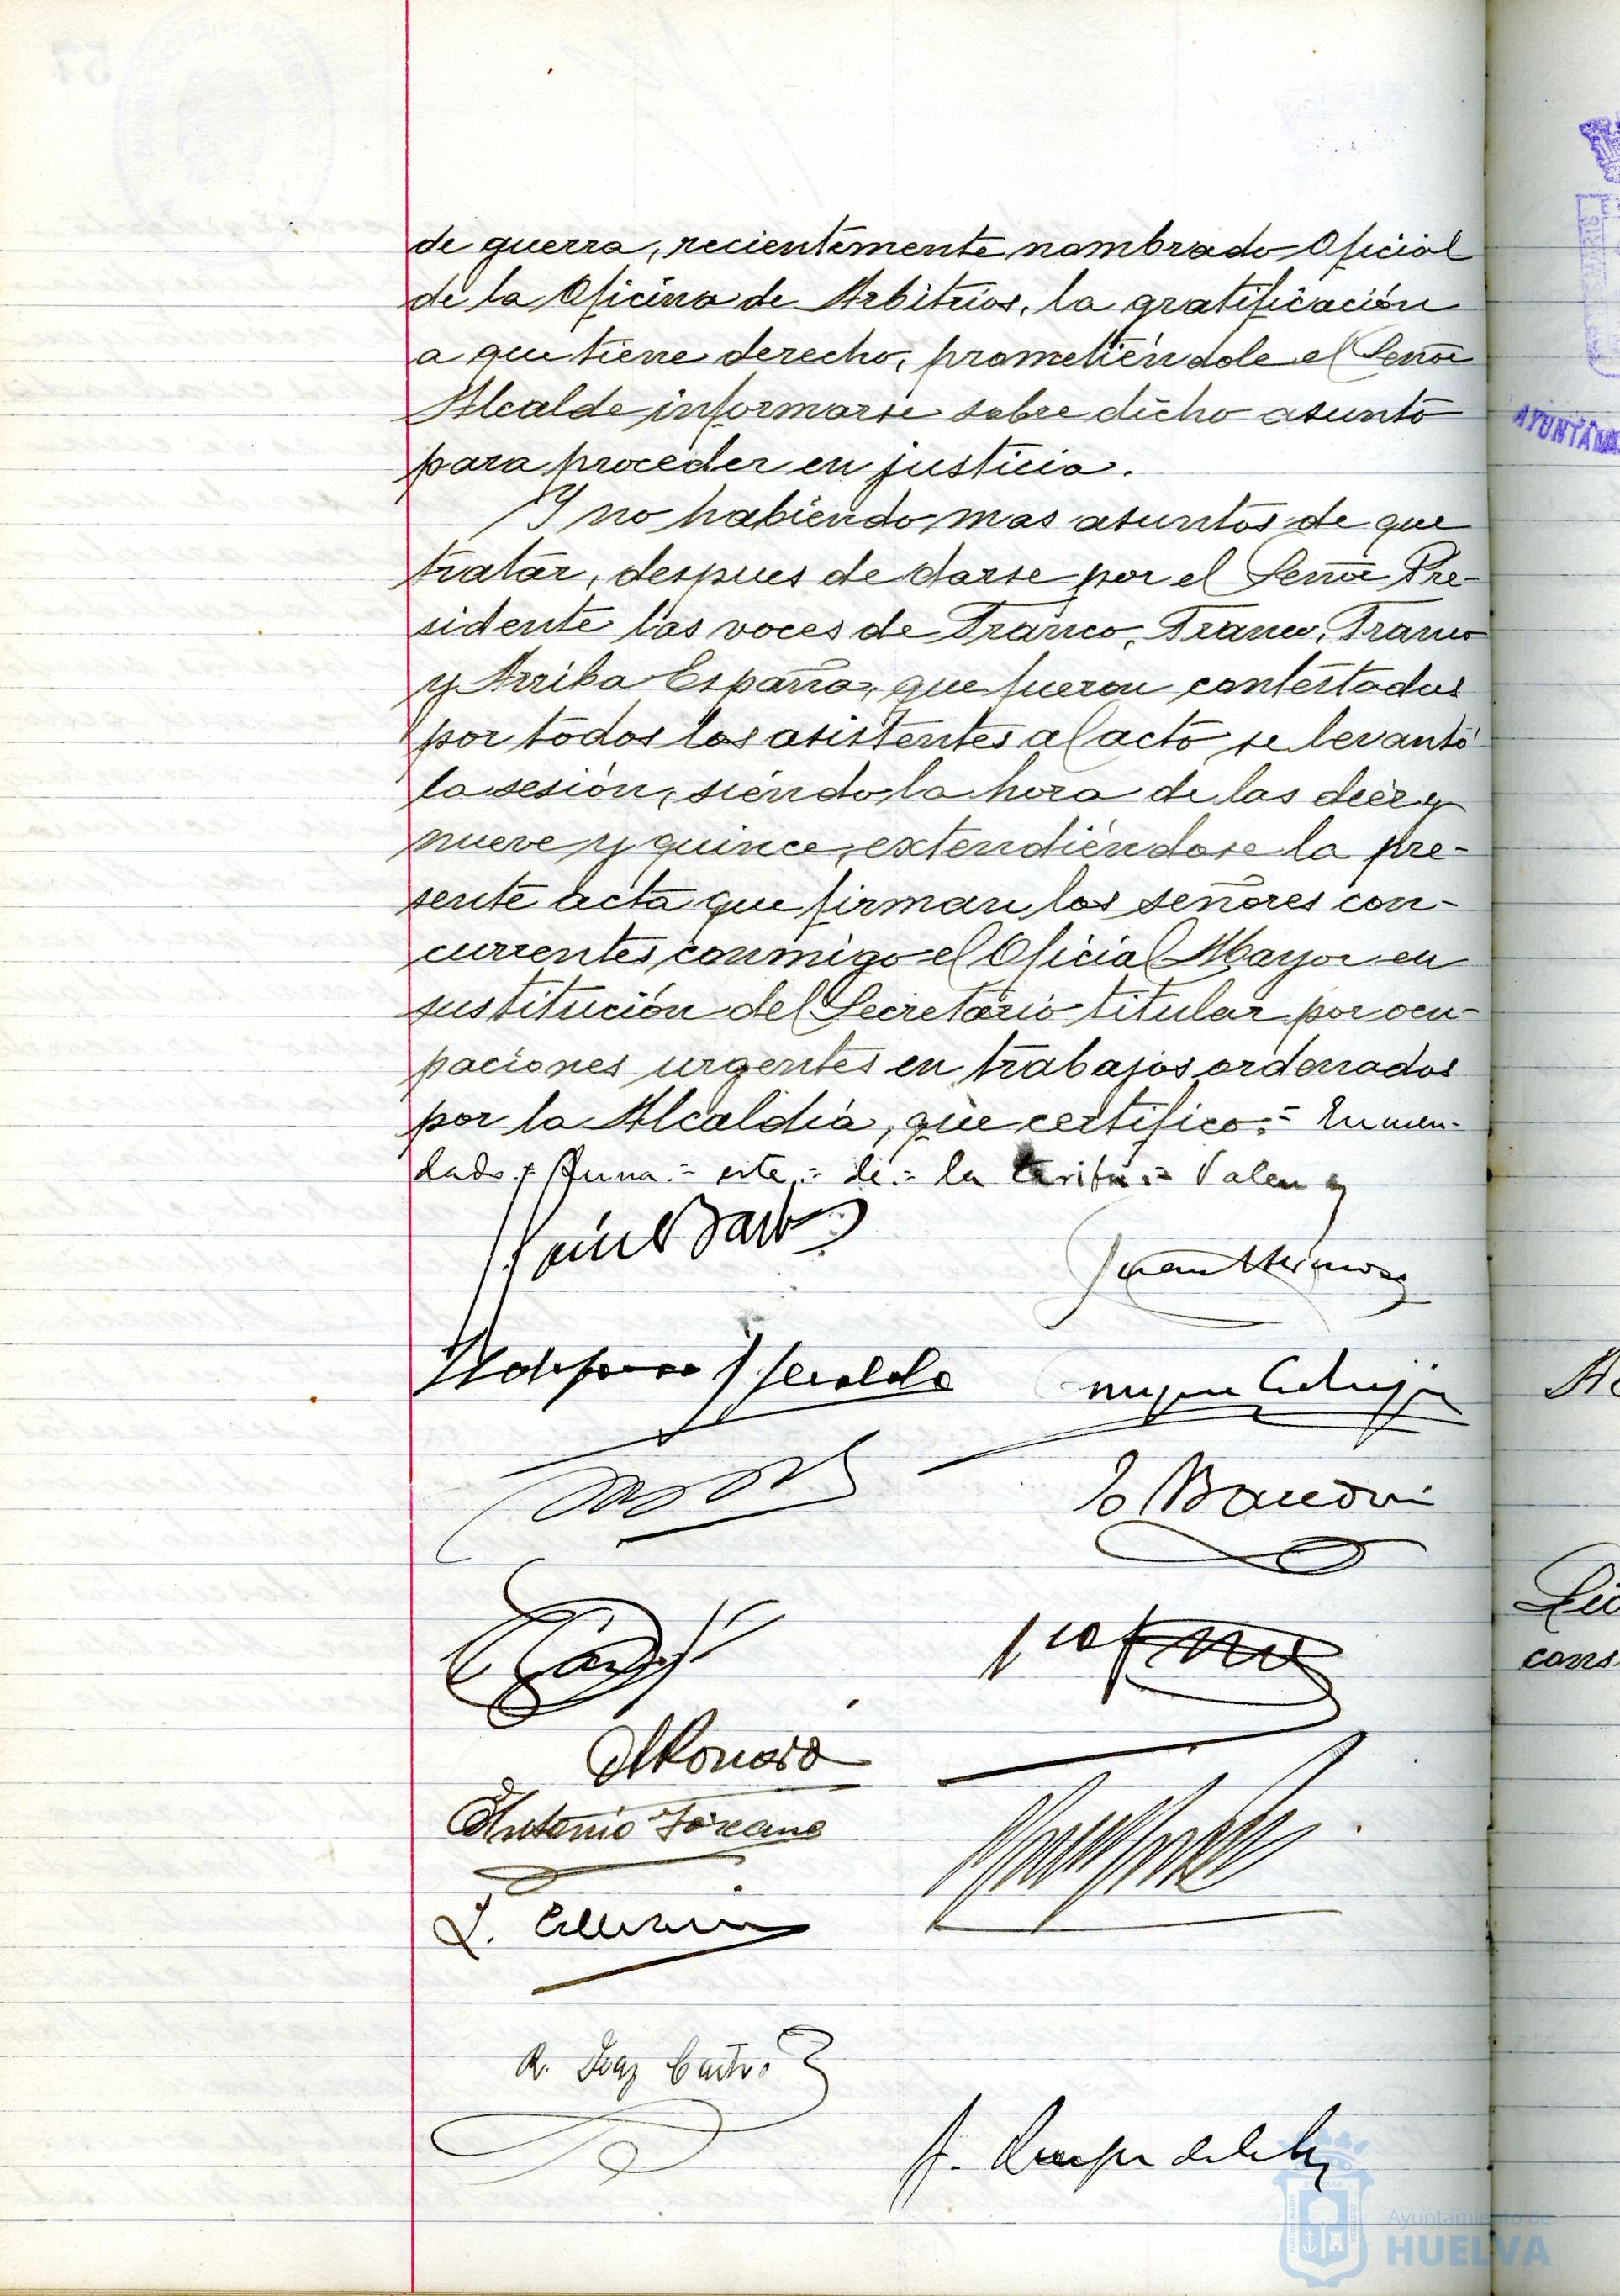 de guerra, recientemente nombrado Oficial
de la Oficina de Arbitrios, la gratificación
a que tiene derecho, prometiéndole el Señor
Alcalde informarse sobre dicho asunto
para proceder en justicia.
Y no habiendo mas asuntos de que
tratar, despues de darse por el Señor Pre-
sidente las voces de Franco, Franco, Franco
y Arriba España, que fueron contestadas
por todos los asistentes al acto se levantó
la sesión, siendo la hora de las diez y
nueve y quince, extendiéndose la pre-
sente acta que firman los señores con-
currentes conmigo el Oficial Mayor en
sustitución del Secretario titular por ocu-
paciones urgentes en trabajos ordenados
por la Alcaldía, que certifico.= Enmen-
dado = este = de = la tarifa = Valen
Antonio Toscano
R. Diaz Castro
AYUNTAM
cons
Ayuntamiento de
HUELVA